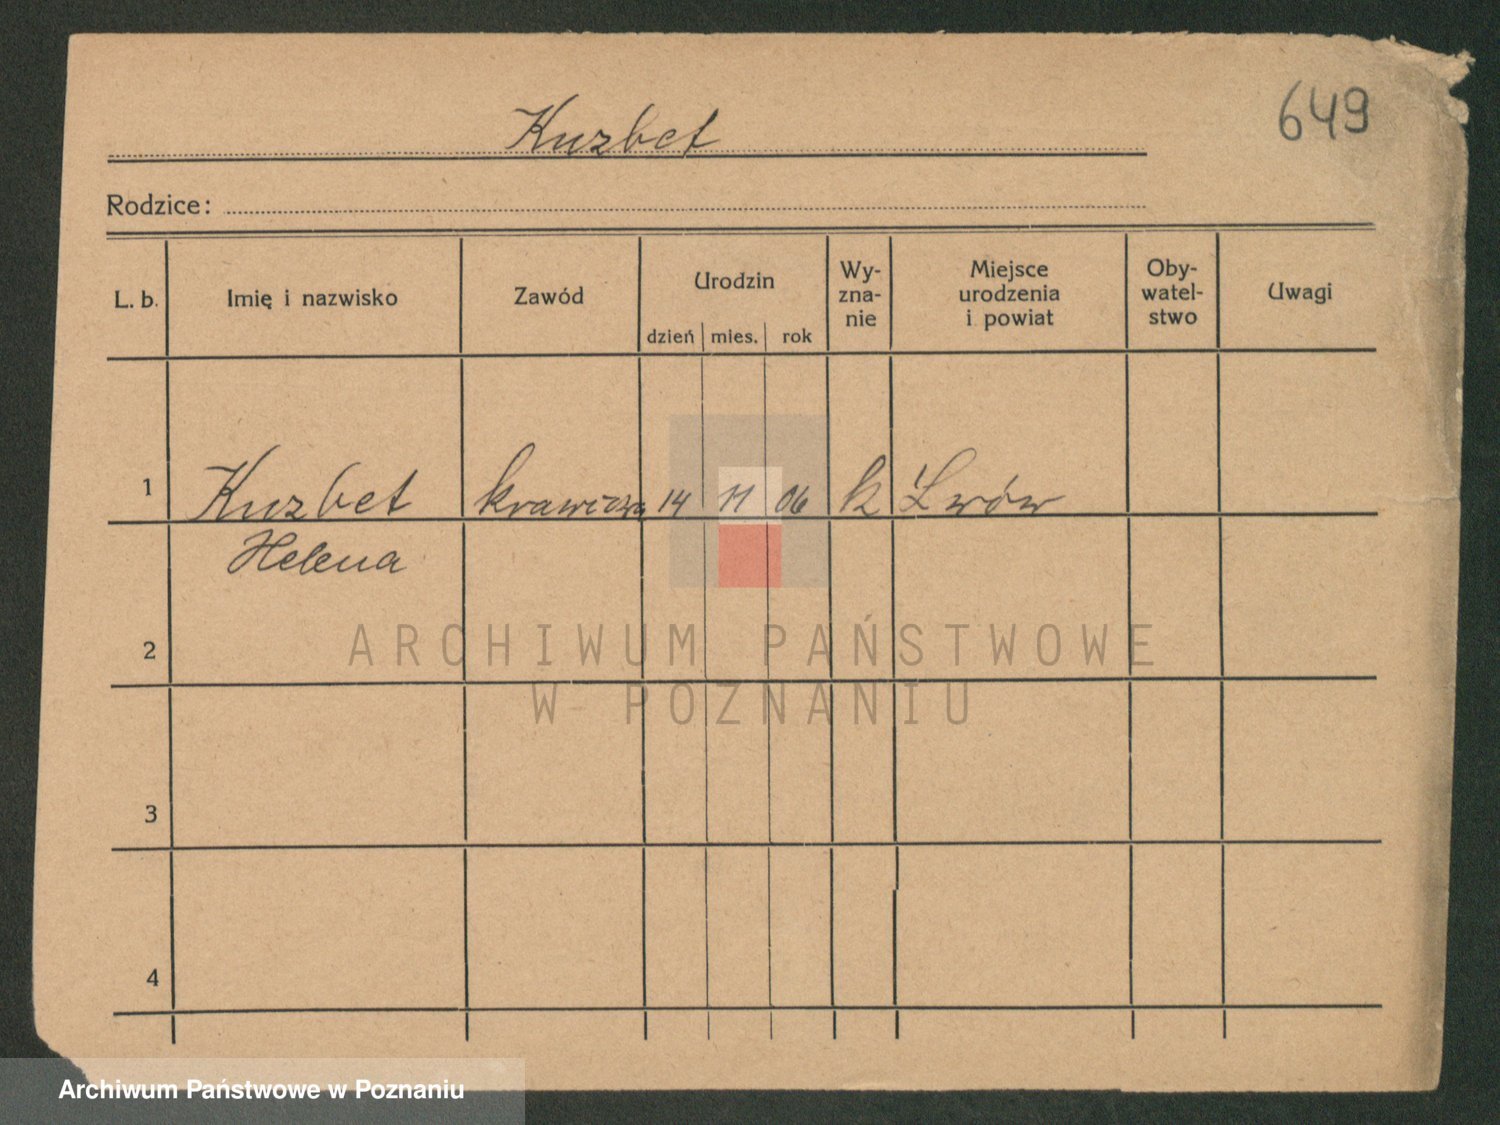 649
Kuzbet
Rodzice:
L. b. Imię i nazwisko Zawód Urodzin Wy-zna-nie Miejsce urodzenia i powiat Oby-watel-stwo Uwagi
dzień mies. rok
1 Kuzbet krawcowa 14 11 06 k Lwów
Helena
2
ARCHIWUM PAŃSTWOWE
W POZNANIU
3
4
Archiwum Państwowe w Poznaniu